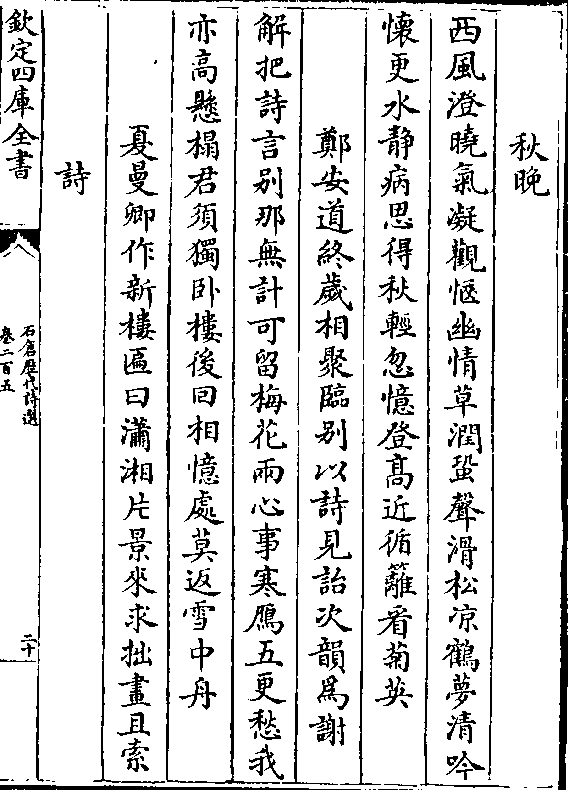 秋晚
西風澄曉氣凝觀愜幽情草潤蛩聲滑松凉鶴夢清吟
懷更水静病思得秋輕忽憶登髙近循籬看菊英
鄭安道終歲相聚臨别以詩見詒次韻爲謝
解把詩言别那無計可留梅花兩心事寒鴈五更愁我
亦高懸榻君須獨卧樓後回相憶處莫返雪中舟
夏曼卿作新樓匾曰瀟湘片景來求拙畫且索
詩
欽定四庫全書
石倉歷代詩選
卷二百五
二十